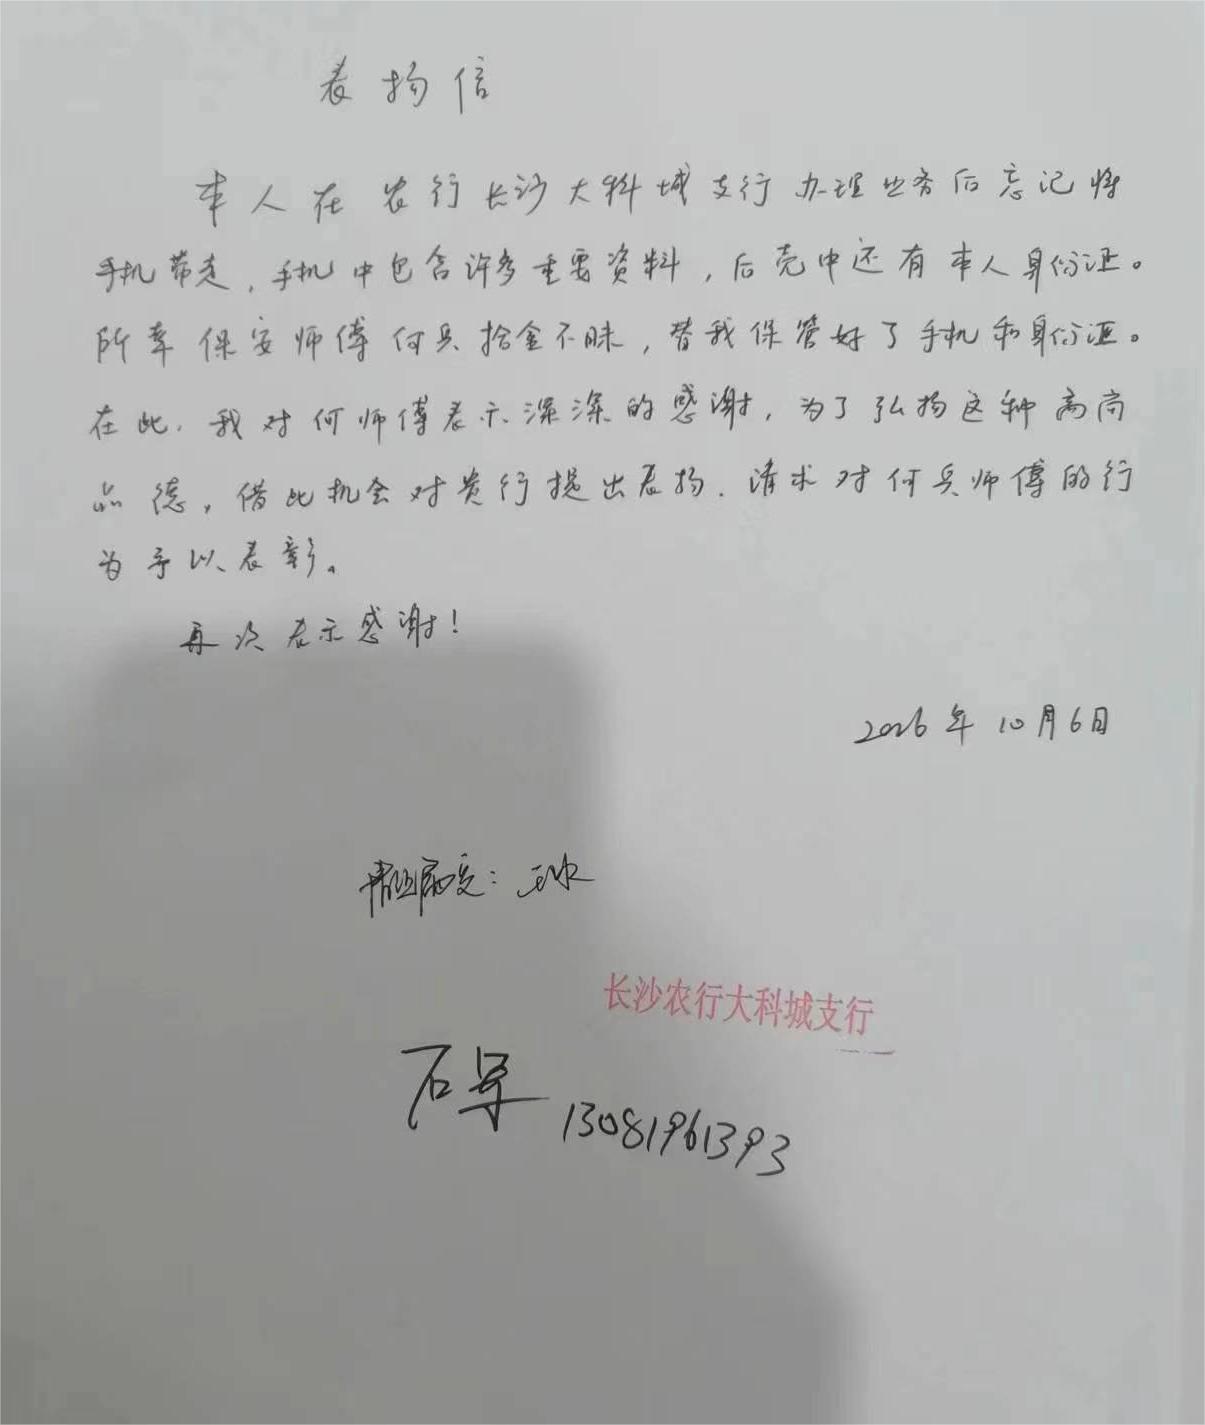 表扬信
本人在农行长沙大科城支行办理业务后忘记将
手机带走，手机中包含许多重要资料，后壳中还有本人身份证。
所幸保安师傅何兵拾金不昧，替我保管好了手机和身份证。
在此，我对何师傅表示深深的感谢，为了弘扬这种高尚
品德，借此机会对贵行提出表扬，请求对何兵师傅的行
为予以表彰。
再次表示感谢！
2026年10月6日
长沙农行大科城支行
石军 13081961393